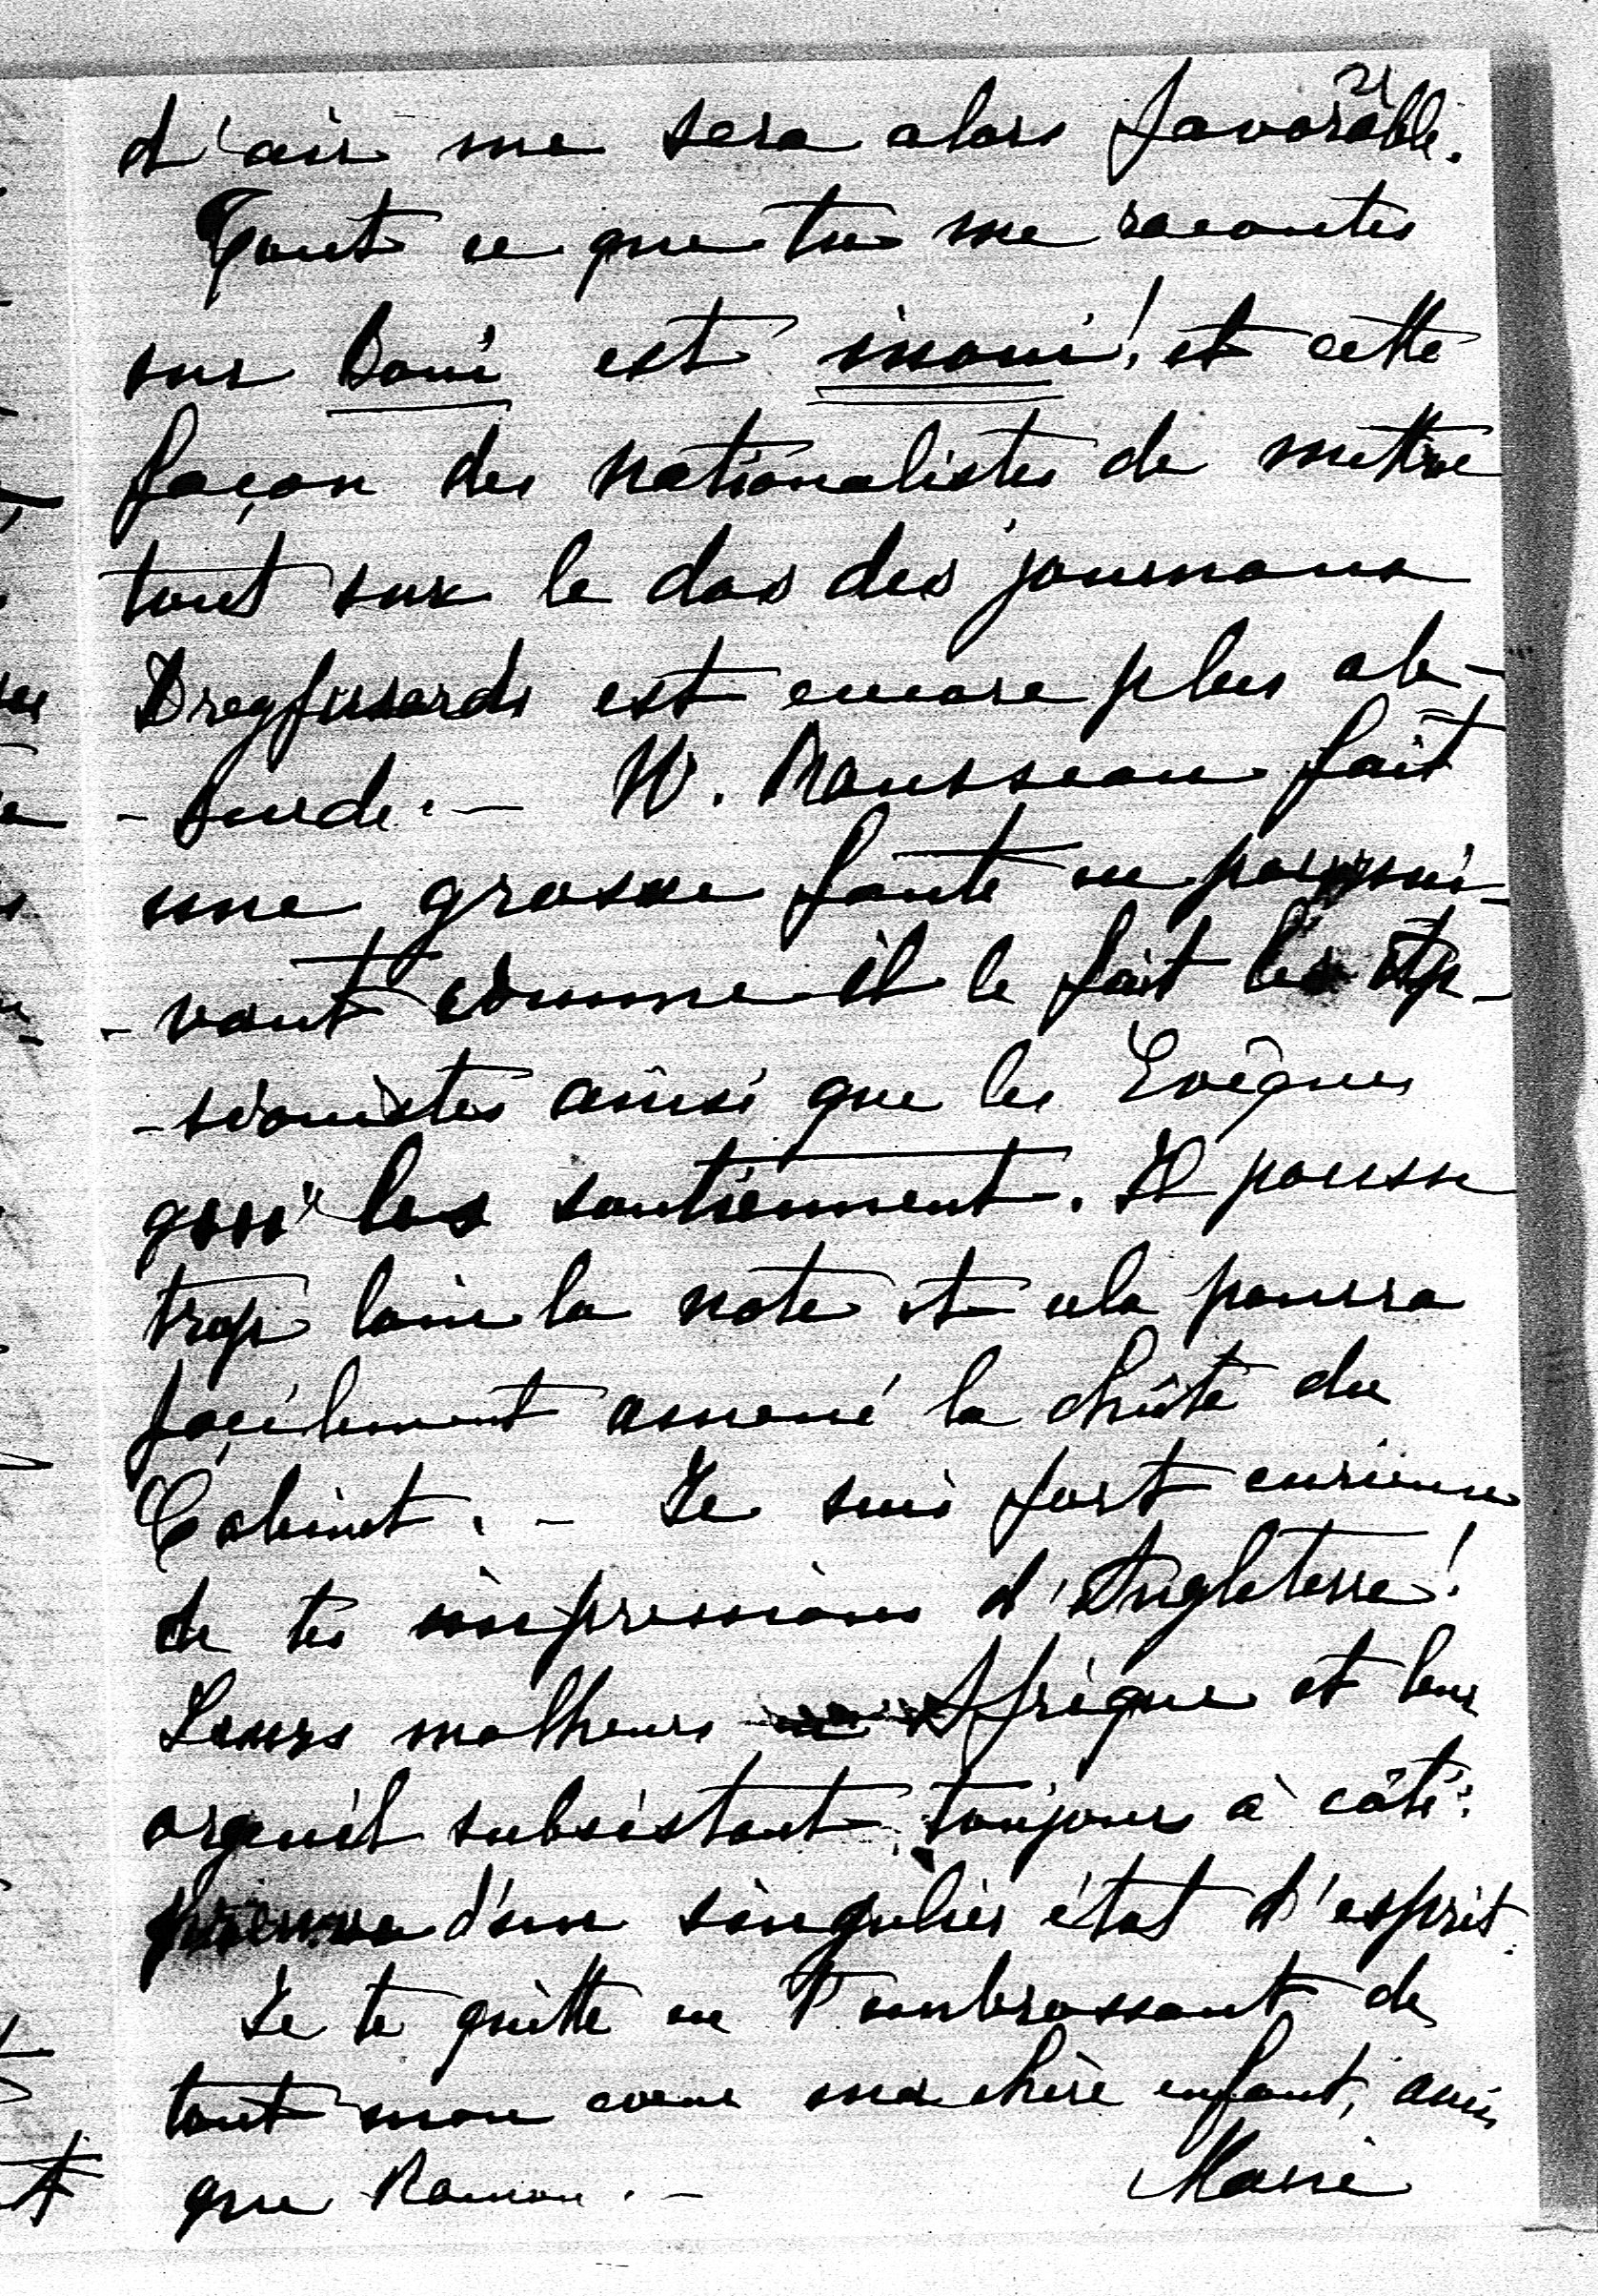 21
d'air me sera alors favorable.
Tout ce que tu me racontes
sur Boni est inouï! et cette
façon des nationalistes de mettre
tout sur le dos des journaux
Dreyfusards est encore plus ab-
-surde. — W. Rousseau fait
une grosse faute en poursui-
-vant comme il le fait les Asp-
-sionistes ainsi que les Evêques
qui les soutiennent. Il pousse
trop loin la note et cela pourra
façilement amené la chûte du
Cabinet. — Je suis fort curieuse
de tes impressions d'Angleterre!
Leurs malheurs en Afrique et leur
orgueil subsistant toujours à côté:
preuve d'un singulier état d'esprit.
Je te quitte en t'embrassant de
tout mon cœur ma chère enfant, ainsi
que Ramon. —
Marie